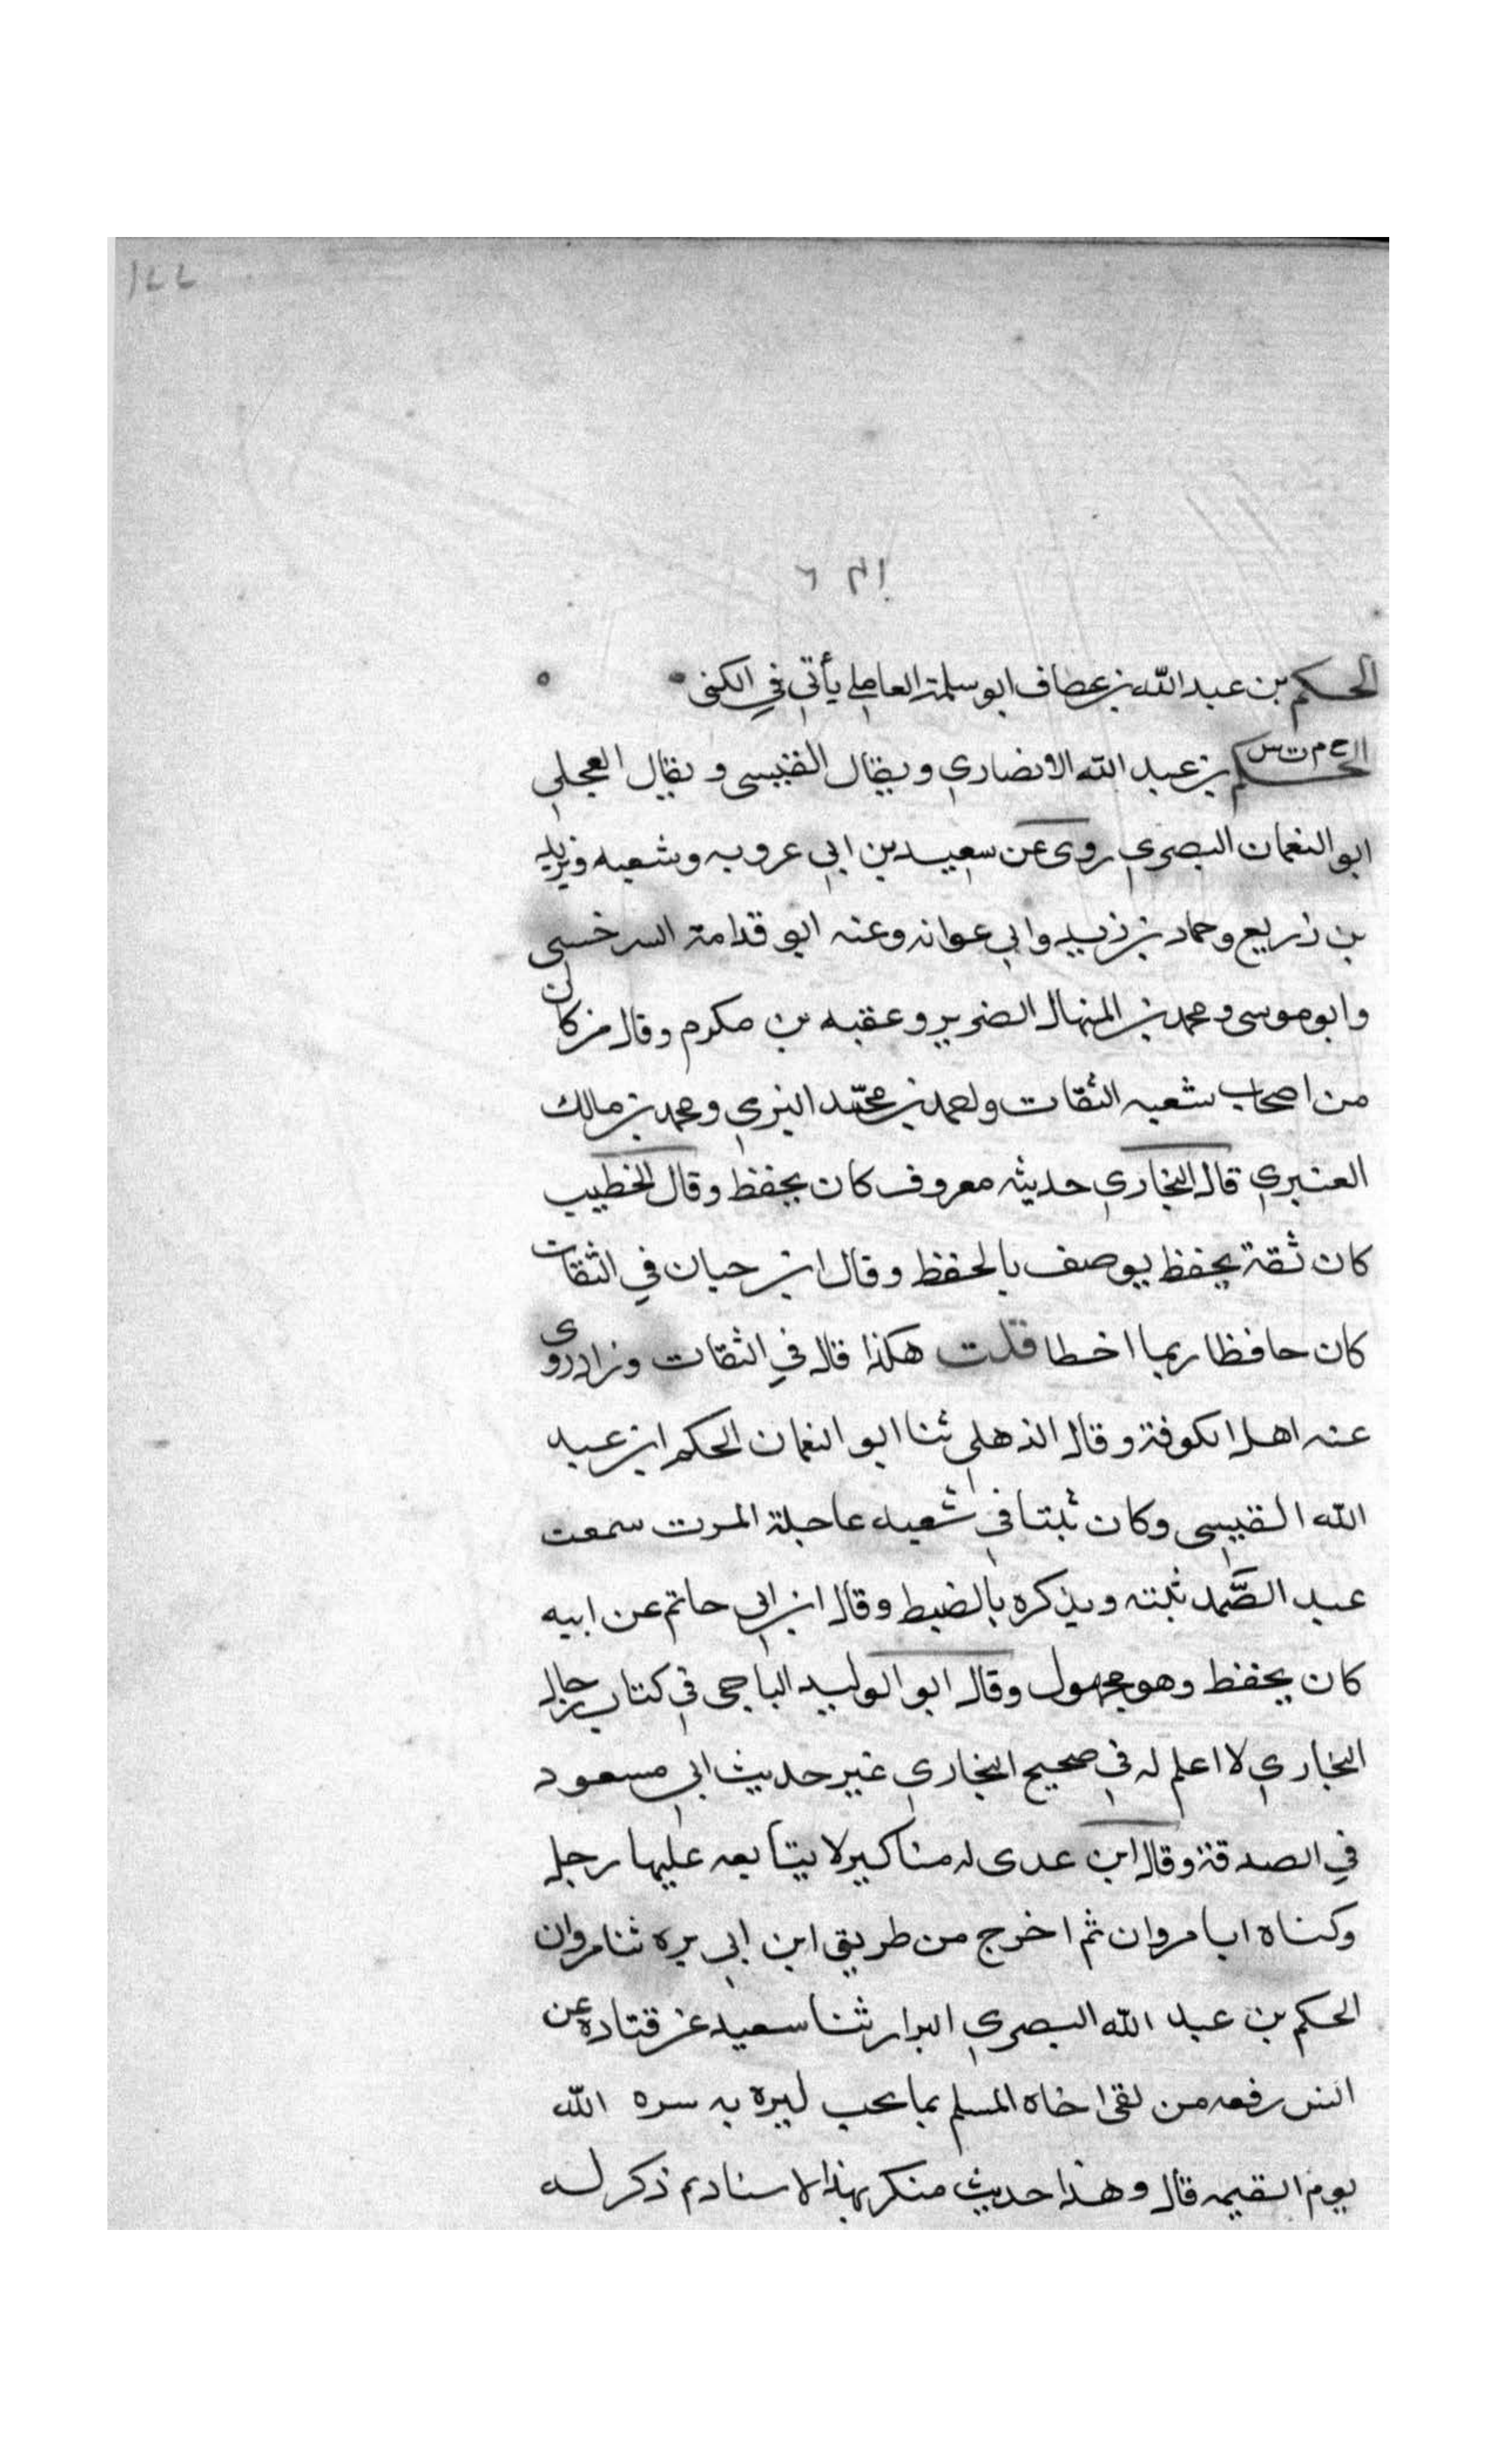 الحكم بن عبد الله بن عطاف ابو سلمة العاملي يأتي في الكنى
خ م ت س
الحكم بن عبد الله الانصاري ويقال القيسي ويقال العجلي
ابو النعمان البصري روى عن سعيد بن ابي عروبه وشعبه ويزيد
بن زريع وحماد بن زيد وابي عوانه وعنه ابو قدامة السرخسي
وابو موسى ومحمد بن المنهال الضرير وعقبه بن مكرم وقال من كان
من اصحاب شعبه الثقات واحمد بن محمد البزي ومحمد بن مالك
العنبري قال البخاري حديثه معروف كان يحفظ وقال الخطيب
كان ثقة يحفظ يوصف بالحفظ وقال ابن حبان في الثقات
كان حافظا ربما اخطا قلت هكذا قال في الثقات وزاد روى
عنه اهل الكوفة وقال الذهلي ثنا ابو النعمان الحكم ابن عبد
الله القيسي وكان ثبتا في شعبه عاجلة المرت سمعت
عبد الصَّمد ثبته ويذكره بالضبط وقال ابن ابي حاتم عن ابيه
كان يحفظ وهو مجهول وقال ابو الوليد الباجي في كتاب رجال
البخاري لا اعلم له في صحيح البخاري غير حديث ابي مسعود
في الصدقة وقال ابن عدى له مناكير لا يتابعه عليها رجل
وكناه ابا مروان ثم اخرج من طريق ابن ابي بره ثنا مروان
الحكم بن عبد الله البصري البزار ثنا سعيد عن قتاده عن
انس رفعه من لقى اخاه المسلم بما يحب ليره به سره الله
يوم القيمه قال وهذا حديث منكر بهذا الاسناد ثم ذكر له